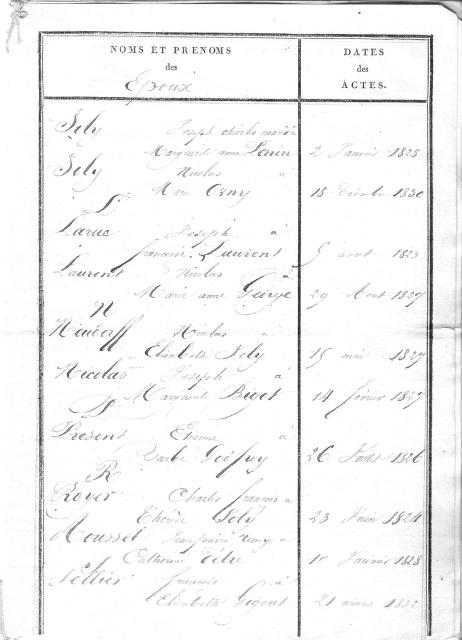 NOMS ET PRENOMS
des
Epoux
DATES
des
ACTES.
Joly Joseph charles marié à
Marguerite anne 2 Janvier 1828
Joly Nicolas à
Marie 18 1830
L
Laruc Joseph à
françoise Laurent 5 aout 1823
Laurent Nicolas à
Marie anne George 29 Aout 1827
N
Nicolas à
Elisabeth Joly 15 mai 1827
Nicolas Joseph à
Marguerite Bigot 14 février 1827
P
Present Etienne à
Barbe 26 Juillet 1826
R
Royer Charles françois à
Joly 23 Juin 1824
Rousset remy à
Catherine 1828
Tellier francois à
Elisabeth Gigout 21 mars 1832